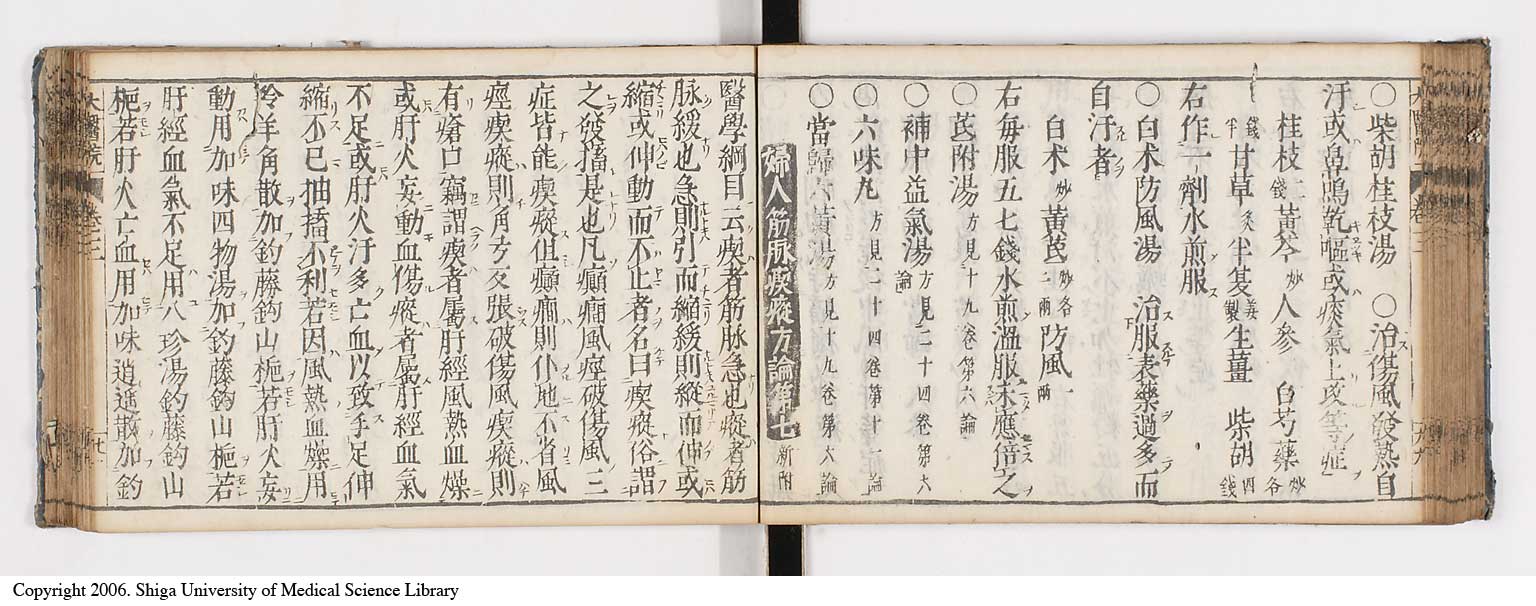 ○柴胡桂枝湯　○治傷風發熱自
汗或鼻鳴乾嘔或痰氣上攻等症
桂枝錢黃芩炒人參　白芍藥炒各
錢半甘草炙半夏姜製生薑　柴胡四錢
右作一劑水煎服
○白术防風湯　治服表藥過多而
自汗者
白术炒黃芪炒各二兩防風一兩
右每服五七錢水煎溫服未應倍之
○芪附湯方見十九卷第六論
○補中益氣湯方見二十四卷第六論
○六味丸方見二十四卷第十一論
○當歸六黃湯方見十九卷第六論
婦人筋脉瘈瘲方論第七新附
醫學綱目云瘈者筋脉急也瘲者筋
脉緩也急則引而縮緩則縱而伸或
縮或伸動而不止者名曰瘈瘲俗謂
之發搐是也凡癲癎風痙破傷風三
症皆能瘈瘲但癲癎則仆地不省風
痙瘈瘲則角弓反張破傷風瘈瘲則
有瘡口竊謂瘈者屬肝經風熱血燥
或肝火妄動血傷瘲者屬肝經血氣
不足或肝火汗多亡血以致手足伸
縮不已抽搐不利若因風熱血燥用
羚羊角散加鈎藤鈎山梔若肝火妄
動用加味四物湯加鈎藤鈎山梔若
肝經血氣不足用八珍湯鈎藤鈎山
梔若肝火亡血用加味逍遙散加鈎
Copyright 2006. Shiga University of Medical Science Library